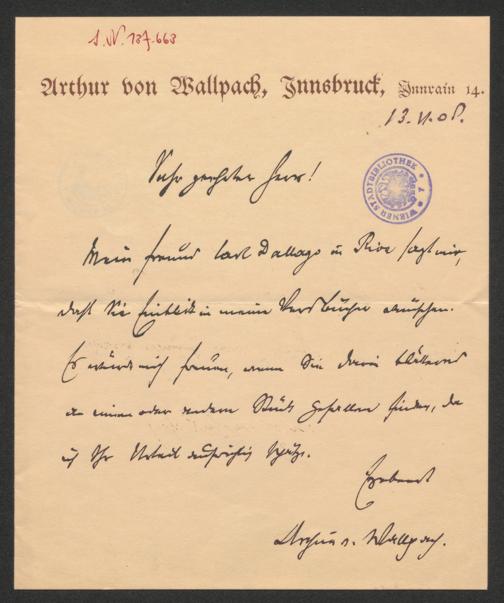 I.N. 137.663
Arthur von Wallpach, Innsbruck, Innrain 14.
13. V. 08.
Sehr geehrter Herr!
WIENER STADTBIBLIOTHEK
Mein Freund Carl Dallago in Riva sagt mir,
daß Sie Einblick in meine Versbücher wünschen.
Es würde mich freuen, wenn Sie darin blätternd
an einem oder andern Stück Gefallen finden, da
ich Ihr Urteil aufrichtig schätze.
Ergebenst
Arthur v. Wallpach.